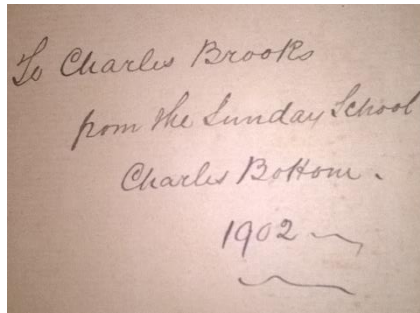 To Charles Brooks
from the Sunday School
Charles Bottom.
1902